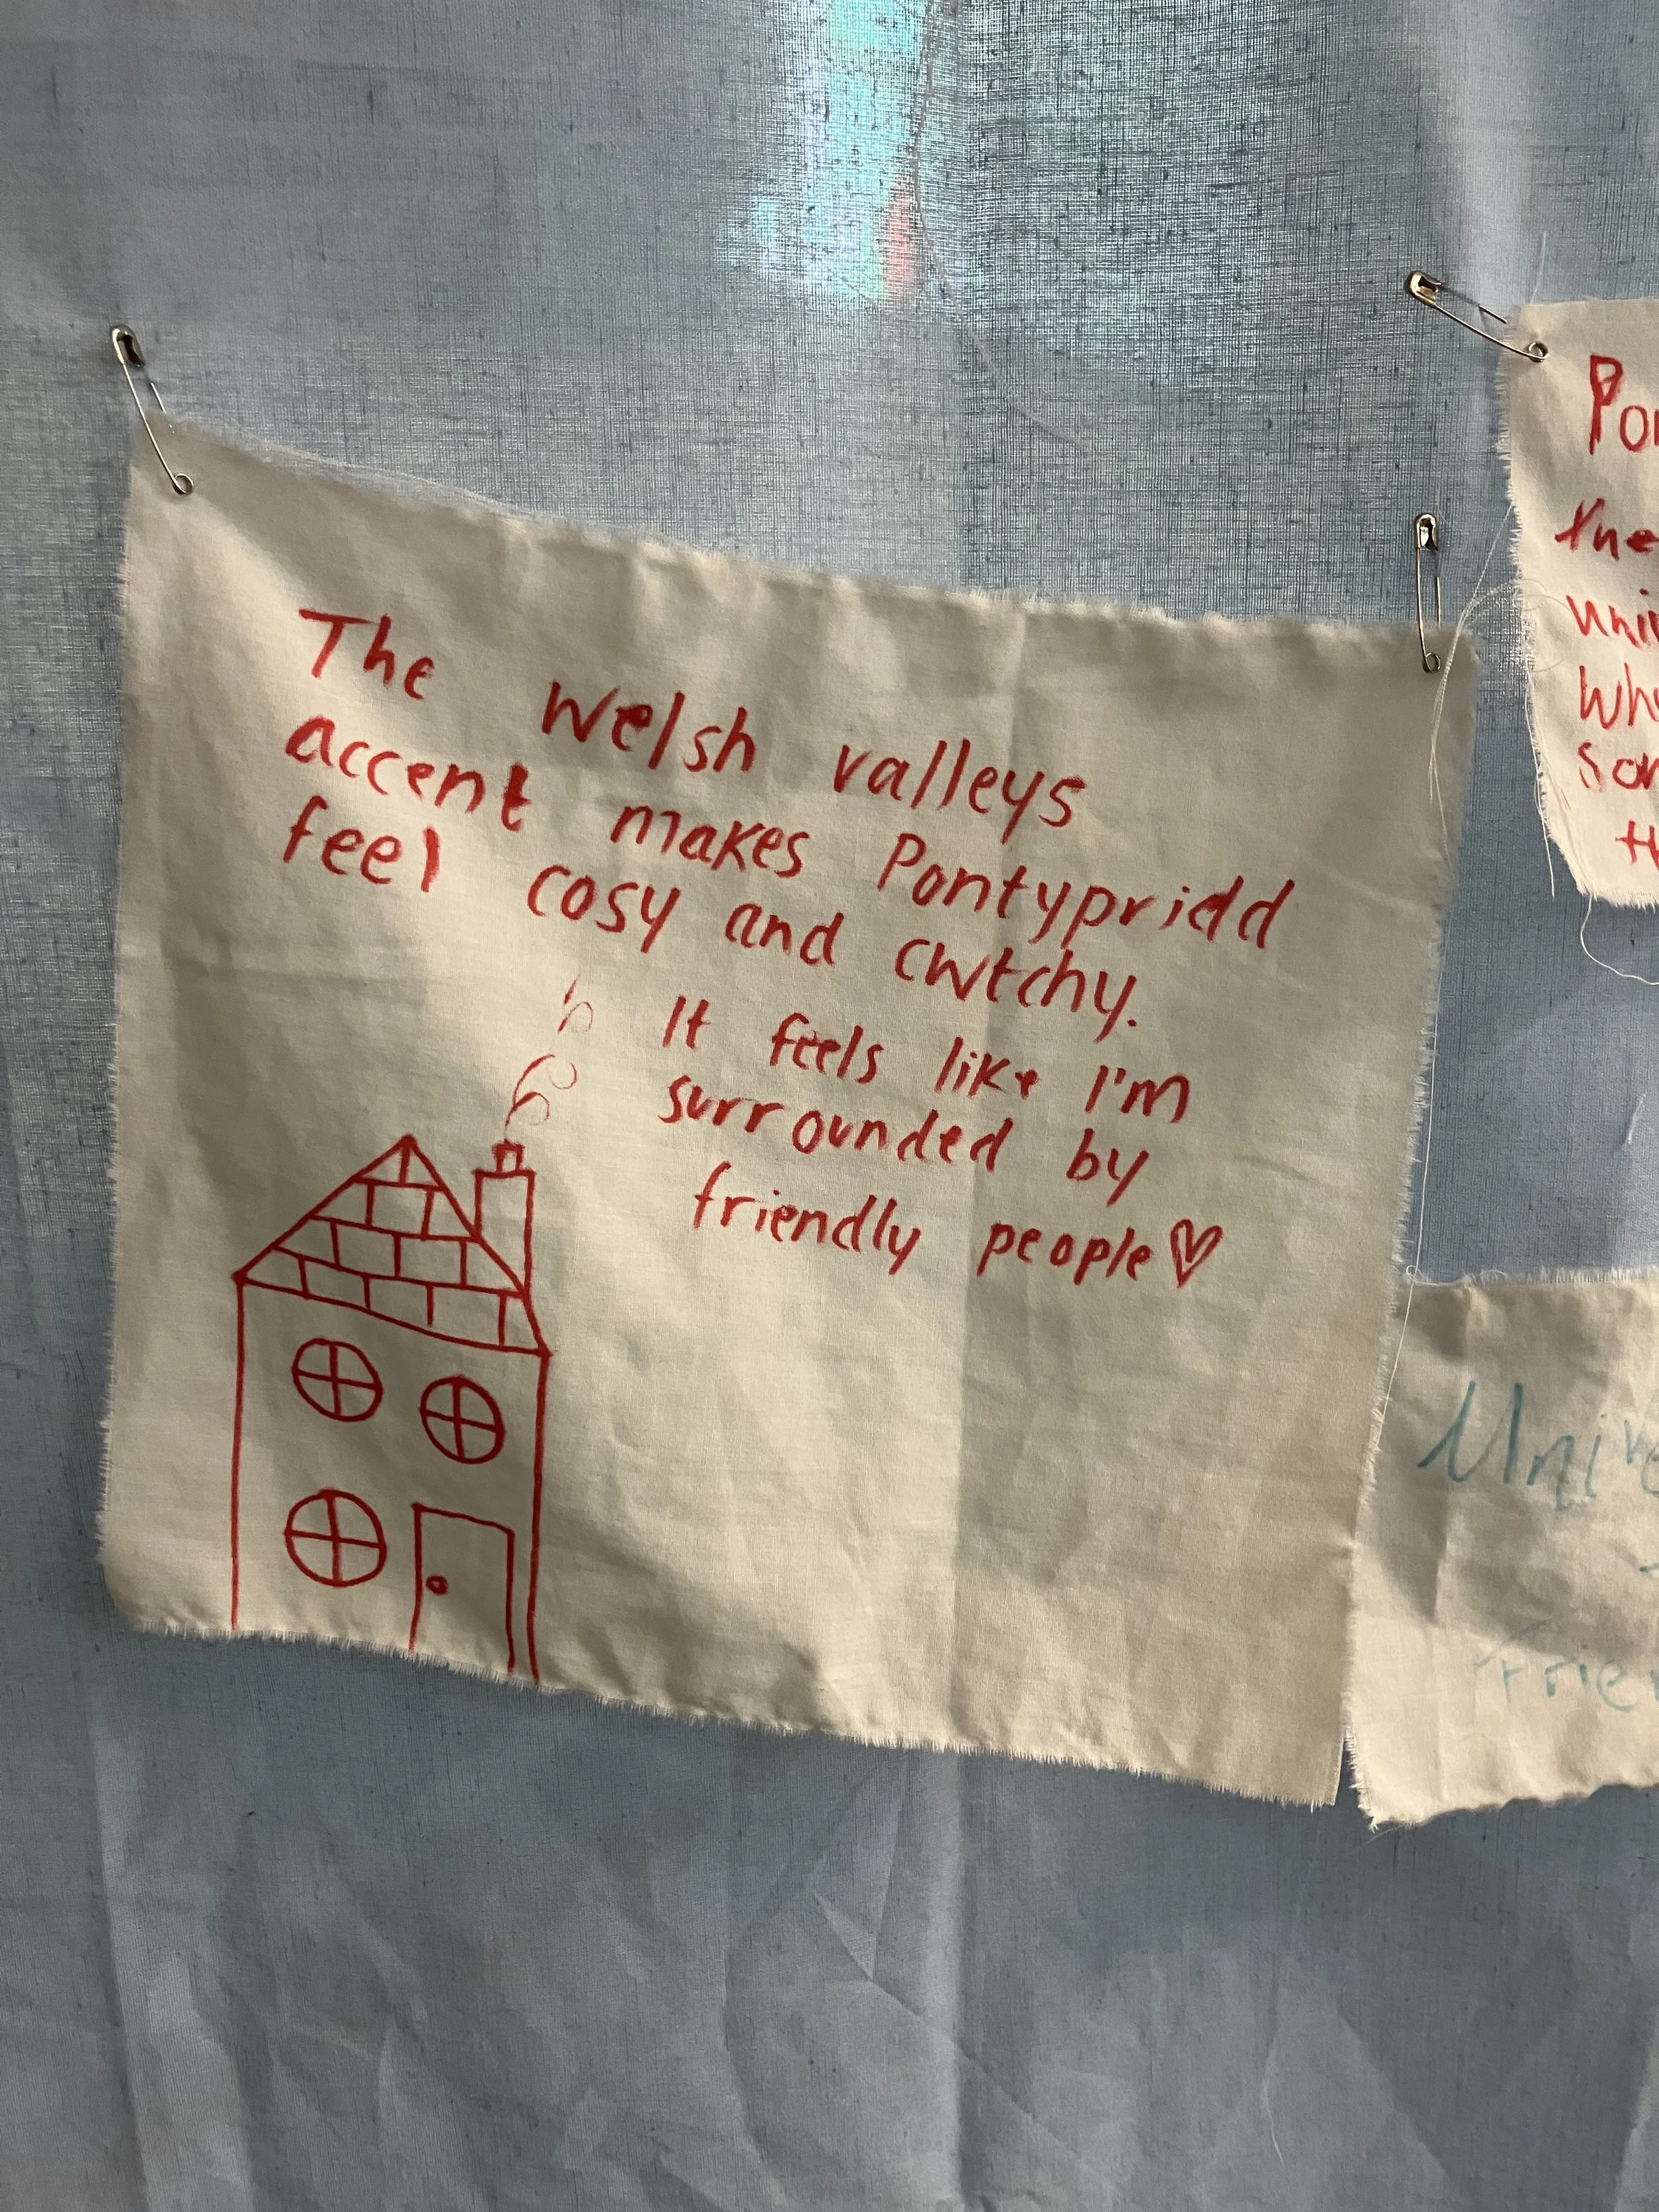 The Welsh valleys
accent makes Pontypridd
feel cosy and cwtchy.
It feels like I'm
surrounded by
friendly people♡
the